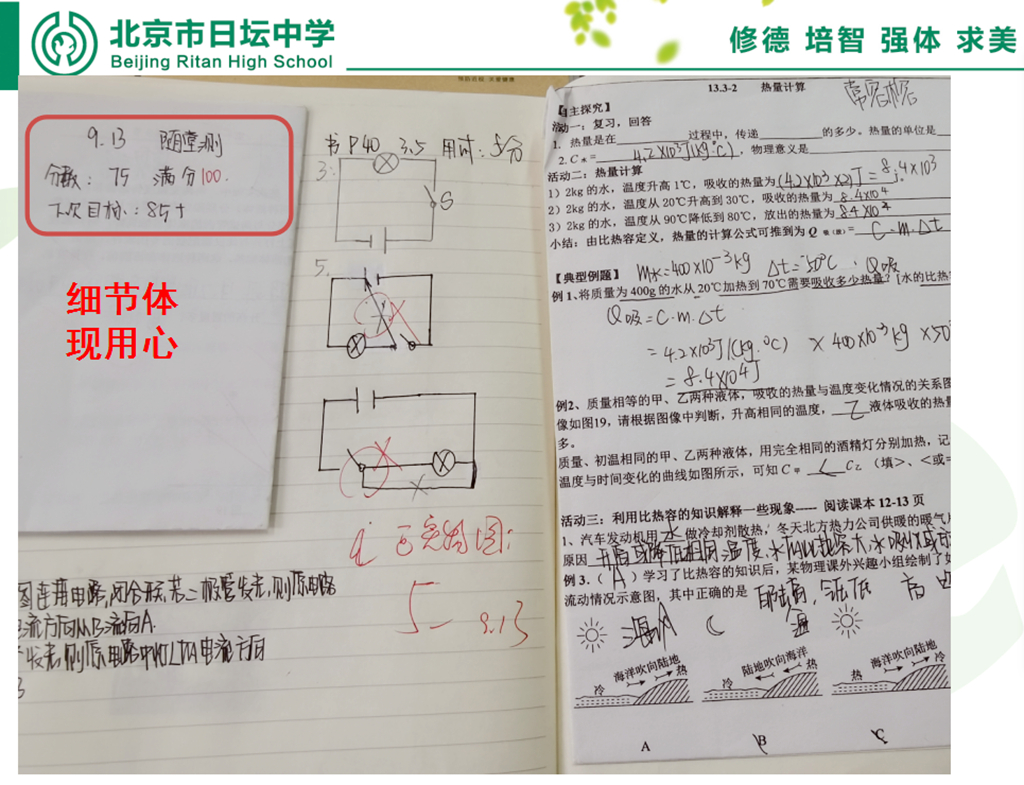 北京市日坛中学
Beijing Ritan High School
修德 培智 强体 求美
9.13 随堂测
分数：75 满分100.
下次目标：85+
细节体
现用心
书P40 3.5 用时：5分
3:
S
5.
已完成图:
5- 9.13
13.3-2 热量计算
主探究】
活动一：复习，回答
1. 热量是在 过程中，传递 的多少。热量的单位是
2. C水= 4.2×10³J/(kg·℃)，物理意义是
活动二：热量计算
1）2kg的水，温度升高1℃，吸收的热量为
2）2kg的水，温度从20℃升高到30℃，吸收的热量为 8.4×10⁴
3）2kg的水，温度从90℃降低到80℃，放出的热量为 8.4×10⁴
小结：由比热容定义，热量的计算公式可推到为 Q 吸（放）= C·m·Δt
【典型例题】 m水=400×10⁻³kg Δt=50℃ Q吸
例1、将质量为400g的水从20℃加热到70℃需要吸收多少热量？[水的比热
Q吸=C·m·Δt
=4.2×10³J/(kg·℃) × 400×10⁻³kg ×50
=8.4×10⁴J
例2、质量相等的甲、乙两种液体，吸收的热量与温度变化情况的关系图
像如图19，请根据图像中判断，升高相同的温度，乙 液体吸收的热量
多。
质量、初温相同的甲、乙两种液体，用完全相同的酒精灯分别加热，记
温度与时间变化的曲线如图所示，可知C甲 < C乙（填>、<或=
活动三：利用比热容的知识解释一些现象----- 阅读课本12-13页
1、汽车发动机用水做冷却剂散热，冬天北方热力公司供暖的暖气用
原因
例3.（ A ）学习了比热容的知识后，某物理课外兴趣小组绘制了如
流动情况示意图，其中正确的是
海洋吹向陆地
冷 热
陆地吹向海洋
冷 热
海洋吹向陆地
热 冷
A B C